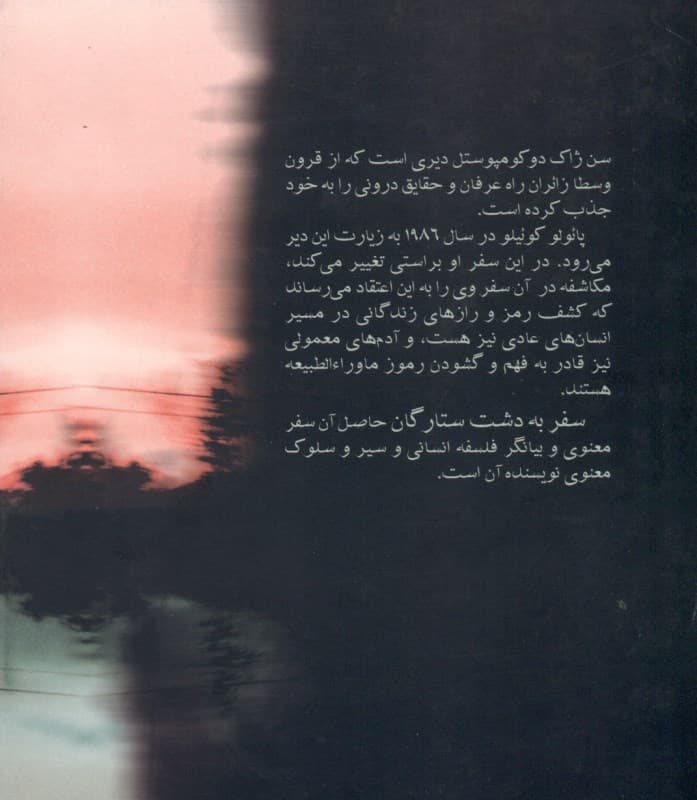 سن ژاک دوکومپوستل دیری است که از قرون
وسطا زائران راه عرفان و حقایق درونی را به خود
جذب کرده است.
پائولو کوئیلو در سال ۱۹۸۶ به زیارت این دیر
می‌رود. در این سفر او براستی تغییر می‌کند،
مکاشفه در آن سفر وی را به این اعتقاد می‌رساند
که کشف رمز و رازهای زندگانی در مسیر
انسان‌های عادی نیز هست، و آدم‌های معمولی
نیز قادر به فهم و گشودن رموز ماوراءالطبیعه
هستند.
سفر به دشت ستارگان حاصل آن سفر
معنوی و بیانگر فلسفه انسانی و سیر و سلوک
معنوی نویسنده آن است.